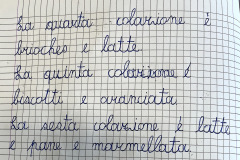 La quarta colazione è
brioches e latte.
La quinta colazione è
biscotti e aranciata
La sesta colazione è latte
e pane e marmellata